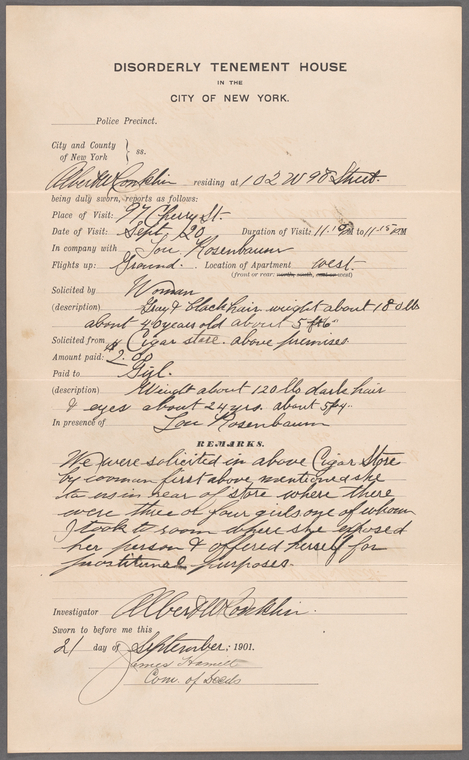 DISORDERLY TENEMENT HOUSE
IN THE
CITY OF NEW YORK.
Police Precinct.
City and County
of New York } ss.
Albert W Conklin residing at 102 W 98 Street.
being duly sworn, reports as follows:
Place of Visit: 97 Cherry St-
Date of Visit: Sept. 20 Duration of Visit: 11-10 PM to 11-15 PM
In company with Lou Rosenbaum
Flights up: Ground. Location of Apartment west.
(front or rear: north, south, east or west)
Solicited by Woman
(description) Gray & black hair weight about 180 lbs
about 40 years old about 5 ft 6"
Solicited from Cigar store. above premises
Amount paid: $2.00
Paid to Girl.
(description) Weight about 120 lbs dark hair
& eyes about 24 yrs. about 5 ft 4"
In presence of Lou Rosenbaum
REMARKS.
We were solicited in above Cigar Store
by woman first above mentioned she
to us in rear of store where there
were three or four girls one of whom
I took to room where she exposed
her person & offered herself for
purposes.
Investigator Albert W Conklin.
Sworn to before me this
21 day of September, 1901.
James Hamilt
Com. of Deeds